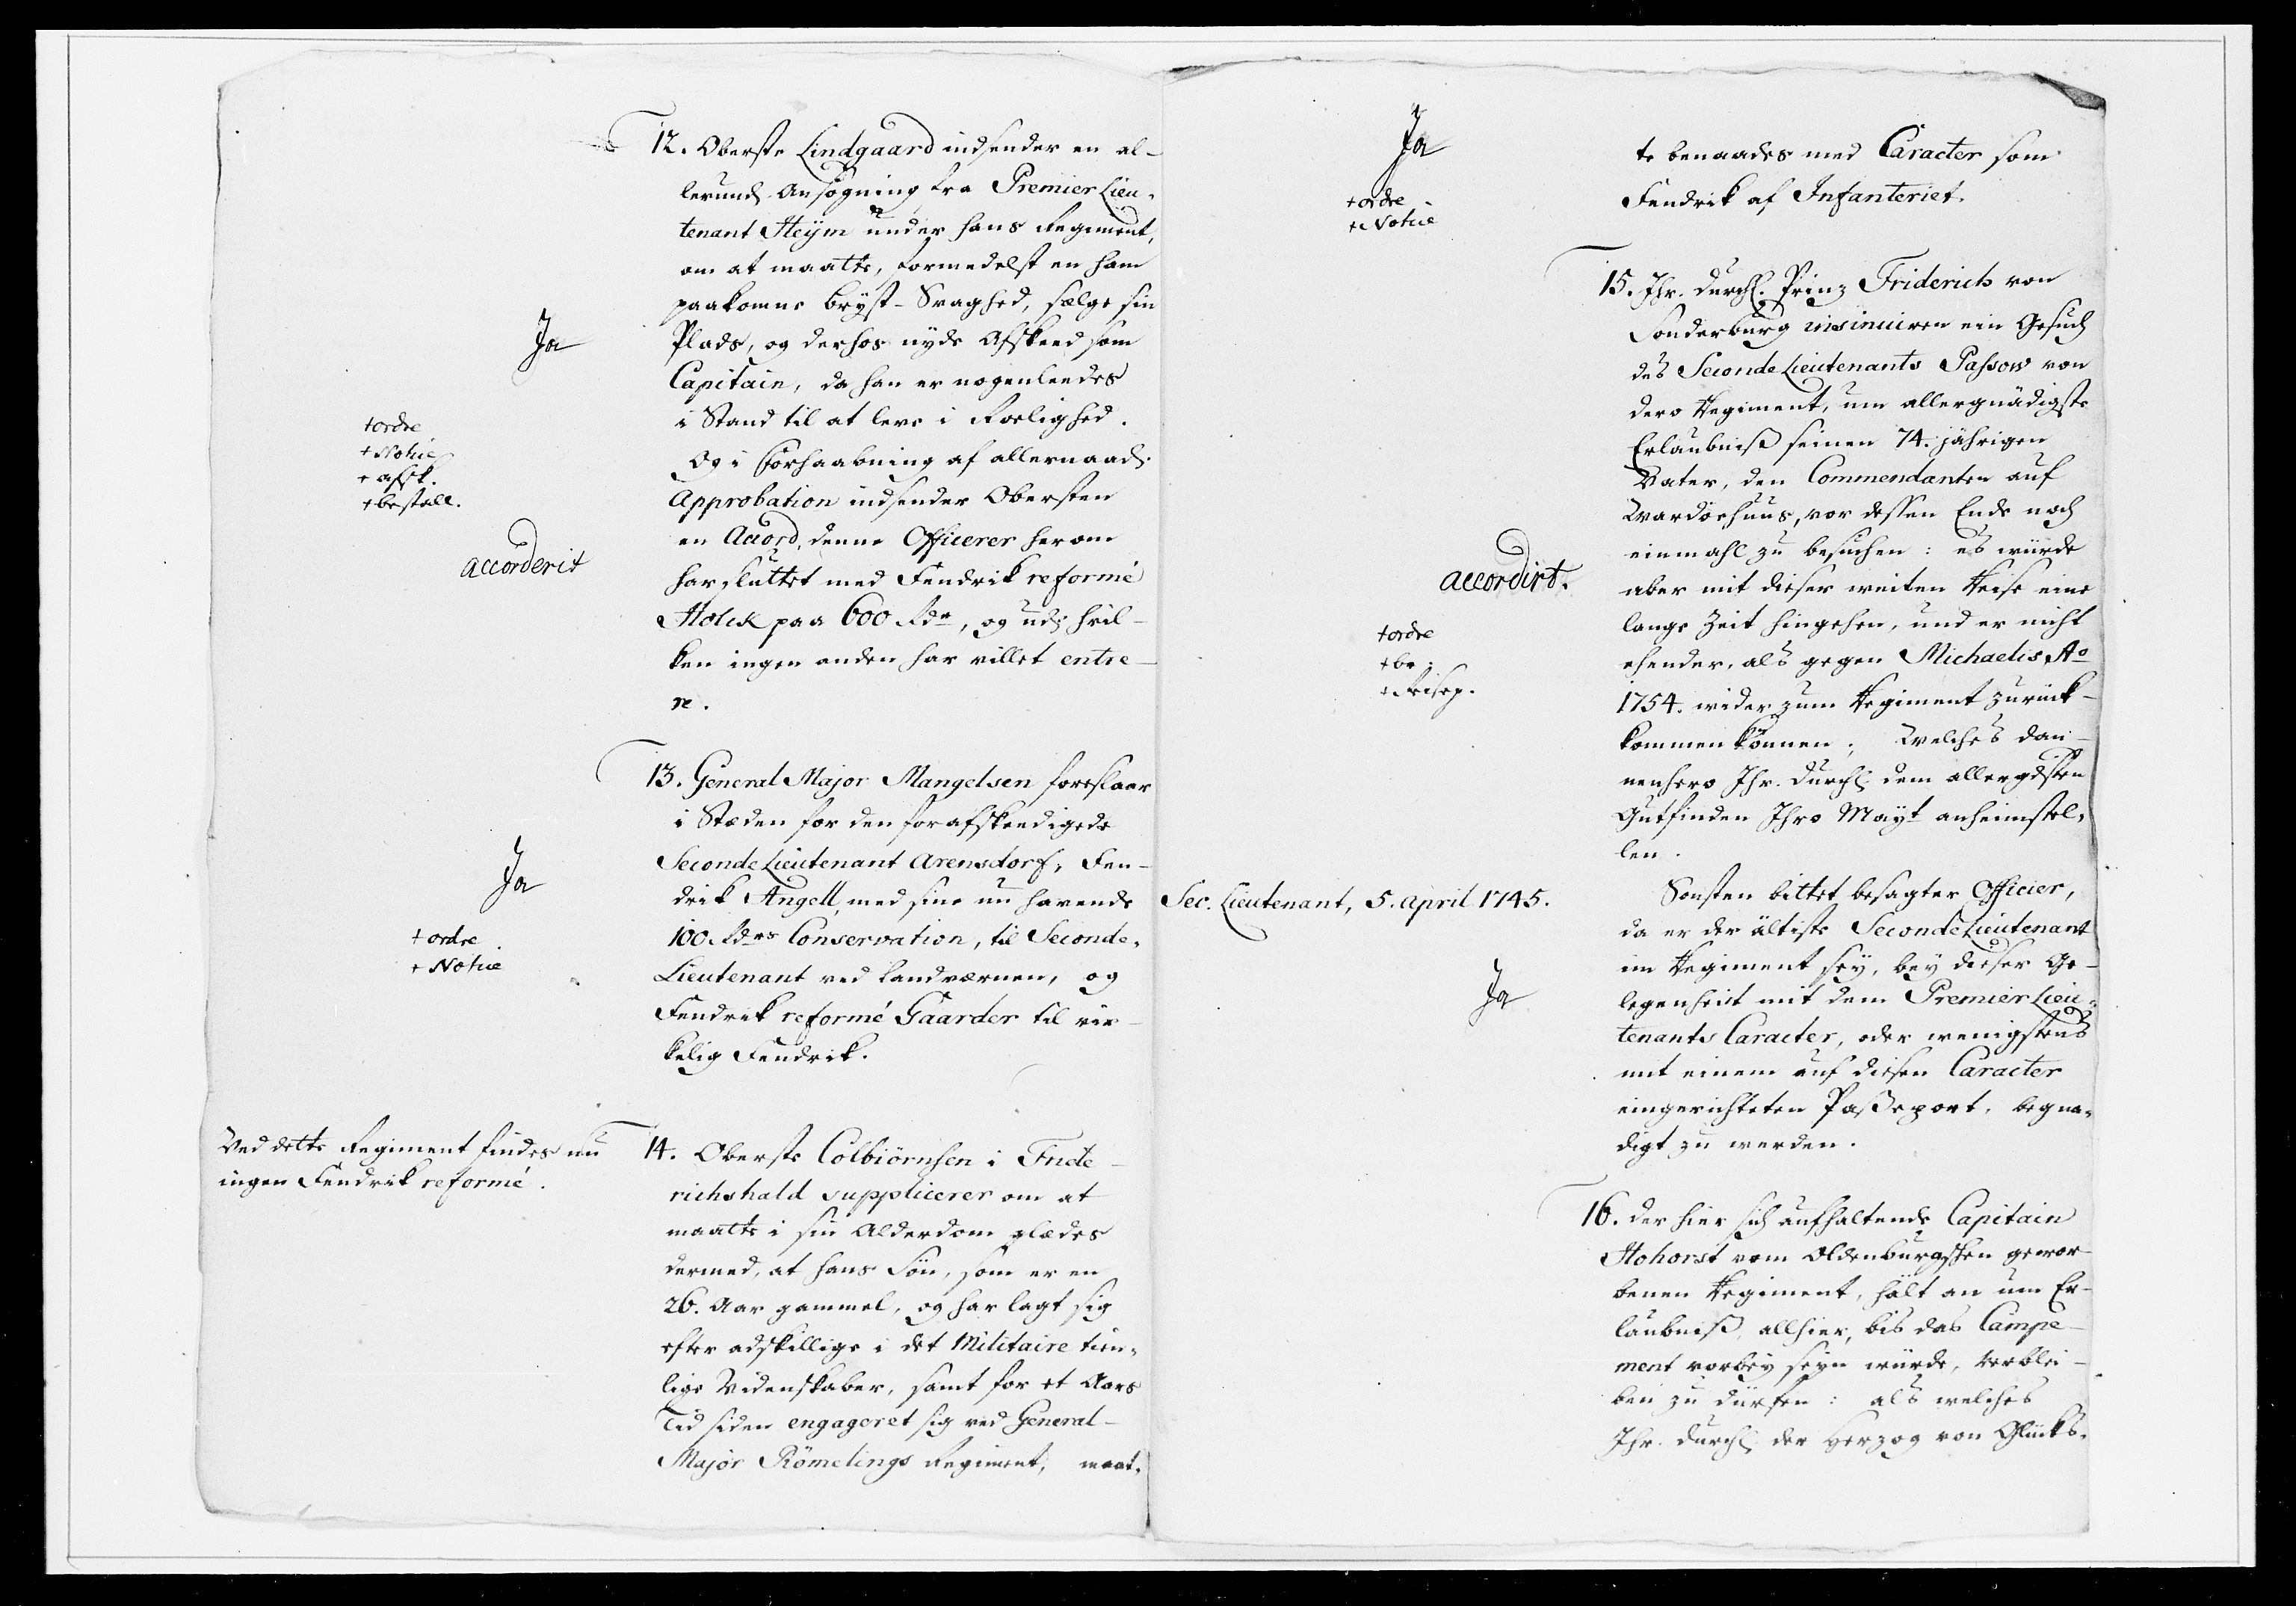 12. Oberste Lindgaard indsender en al-
lerund. Ansøgning fra Premier Lieu-
tenant Heÿm under hans Regiment,
om at maatte, formedelst en ham
paakomne Brÿst-Svaghed, sælge sin
Ja
Plads, og derhos nyde Afskeed som
Capitain, da han er nogenleedes
i Stand til at leve i Roelighed.
+ ordre
+ Notice
+ afsk.
+ bestall.
Og i Forhaabning af allernaad.
Approbation indsender Obersten
en Accord, denne Officerer herom
accorderit
har sluttet med Fendrik reformé
Holck paa 600 Rdr, og uds hvil-
ken ingen anden har villet entre-
re.
13. General Major Mangelsen foreslaar
i Stæden for den forafskeedigede
Seconde Lieutenant Arensdorf, Fen-
Ja
drik Angell, med sine nu havende
100 Rdrs Conservation, til Seconde-
+ ordre
+ Notice
Lieutenant ved Landværnen, og
Fendrik reformé Gaarder til vir-
kelig Fendrik.
Ved dette Regiment findes nu
ingen Fendrik reformé.
14. Oberste Colbiörnsen i Fride-
richshald supplicerer om at
maatte i sin Alderdom glædes
dermed, at hans Søn, som er en
26. Aar gammel, og har lagt sig
efter adskillige i det Militaire tien-
lige Videnskaber, samt for et Aars
Tid siden engageret sig ved General-
Major Römelings Regiment, maat-
Ja
+ ordre
+ Notice
te benaades med Caracter som
Fendrik af Infanteriet.
15. Ihr. Durchl. Prinz Friderich von
Sonderburg insinuiren ein Gesuch
des Seconde Lieutenants Passow von
dero Regiment, um allergnädigste
Erlaubniß seinen 74. jährigen
Vater, den Commendanten auf
Wardöehuus, vor dessen Ende noch
einmahl zu besuchen: es würde
accordirt.
aber mit dieser weiten Reise eine
lange Zeit hingehen, und er nicht
+ ordre
+ br.
+ Reisep.
ehender, als gegen Michaelis Ao
1754. wider zum Regiment zurück-
kommen können; Welches dan-
nenhero Ihr. Durchl. dem allergdsten
Gutfinden Ihro Mayt anheimstel-
len.
Sec. Lieutenant, 5. April 1745.
Sonsten bittet besagter Officier,
da er der ältiste Seconde Lieutenant
im Regiment sey, bey dieser Ge-
Ja
legenheit mit dem Premier Lieu-
tenants Caracter, oder wenigstens
mit einem auf diesen Caracter
eingerichteten Paßeport, begna-
digt zu werden.
16. Der hier sich aufhaltende Capitain
Hohorst vom Oldenburgschen gewor-
benen Regiment, hält an um Er-
laubniß, allhier, bis das Campe-
ment vorbey seyn würde, verblei-
ben zu dürfen: als welches
Ihr. Durchl. der Herzog von Glücks-